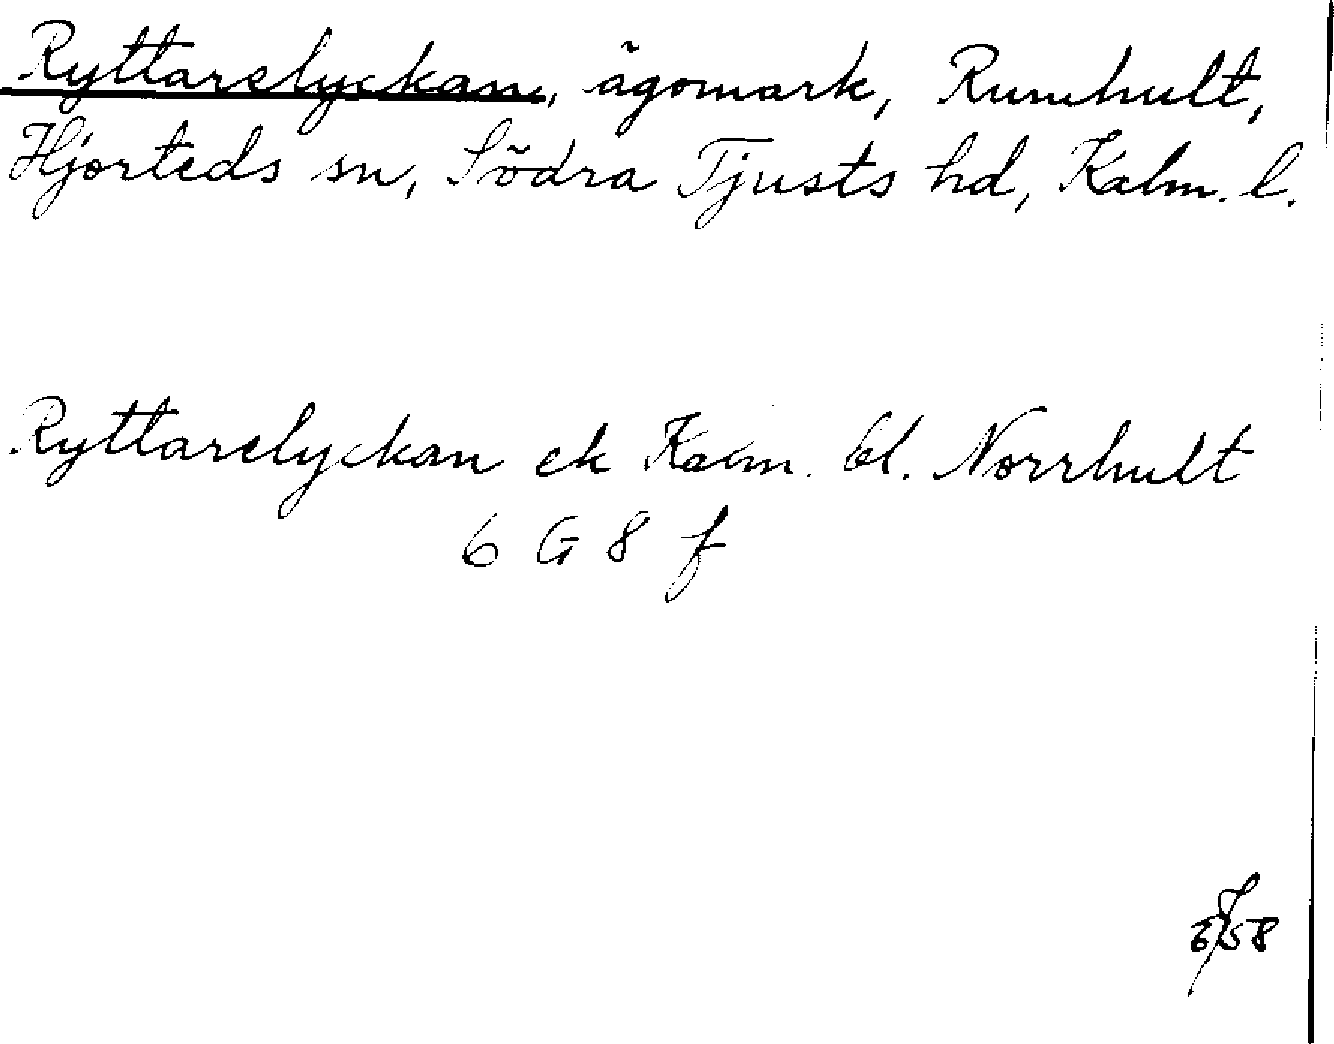 Ryttarelyckan, ägomark, Rumhult,
Hjorteds sn, Södra Tjusts hd, Kalm. l.
Ryttarelyckan ek Kalm. bl. Norrhult
6 G 8 f
58